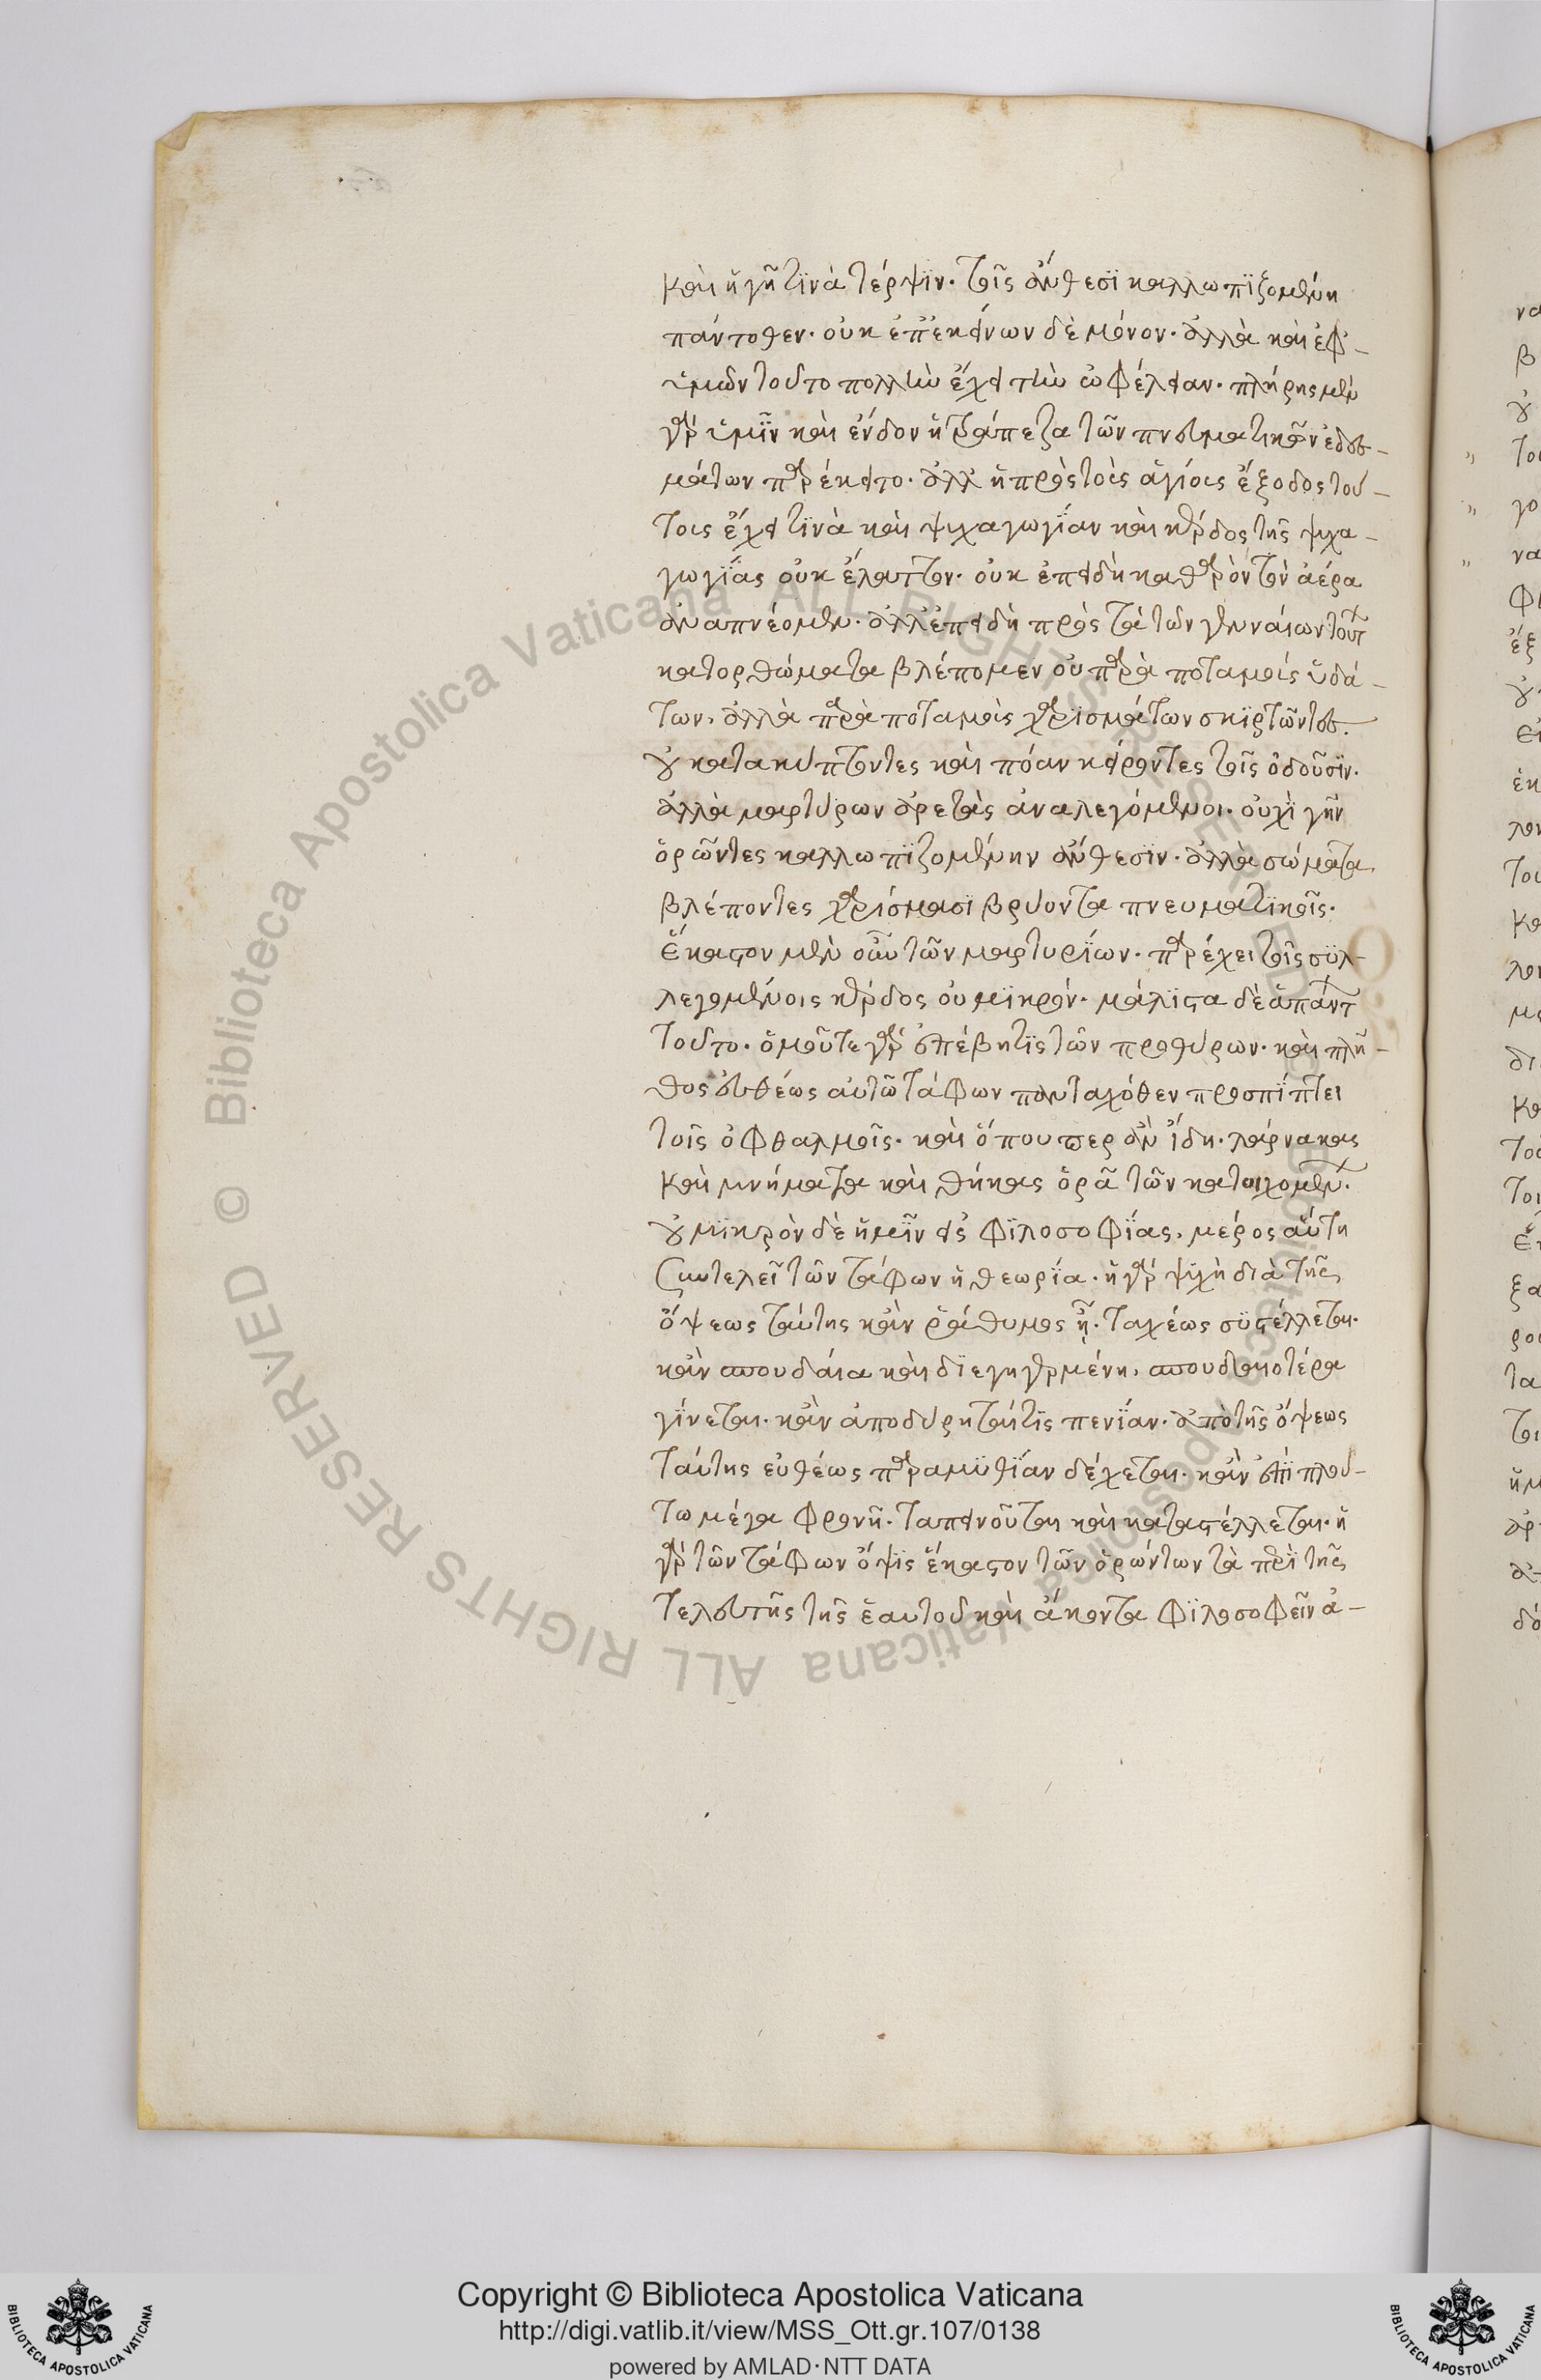 καὶ ἡ γῆ τϊνὰ τέρψϊν· τοῖς ἄνθεσϊ καλλωπϊζομένη
πάντοθεν· οὐκ ἐπ᾽ ἐκείνων δὲ μόνον· ἀλλὰ καὶ ἐφ᾽
ἡμῶν τοῦτο πολλὴν ἔχει τὴν ὠφέλειαν· πλήρης μὲν
γὰρ ἡμῖν καὶ ἔνδον ἡ τράπεζα τῶν πνευματικῶν ἐδεσ-
μάτων παρέκειτο· ἀλλ᾽ ἡ πρὸς τοὺς ἁγίους ἔξοδος τού-
τους ἔχει τϊνὰ καὶ ψυχαγωγΐαν καὶ κέρδος τῆς ψυχα-
γωγΐας οὐκ ἔλαττον· οὐκ ἐπειδὴ καθαρὸν τὸν ἀέρα
ἀναπνέομεν· ἀλλ᾽ ἐπειδὴ πρὸς τὰ τῶν γενναίων τούτ
κατορθώματα βλέπομεν οὐ παρὰ ποταμοὺς ὑδά-
των, ἀλλὰ παρὰ ποταμοὺς χαρϊσμάτων σκϊρτῶντες.
οὐ κατακύπτοντες καὶ πόαν κείροντες τοῖς ὀδοῦσϊν·
ἀλλὰ μαρτύρων ἀρετὰς ἀναλεγόμενοι· οὐχὶ γῆν
ὁρῶντες καλλωπϊζομένην ἄνθεσϊν· ἀλλὰ σώματα
βλέποντες χαρίσμασϊ βρύοντα πνευματϊκοῖς·
ἕκαστον μὲν οὖν τῶν μαρτυρΐων· παρέχει τοῖς συλ-
λεγομένοις κέρδος οὐ μϊκρόν· μάλϊστα δὲ ἁπάντ
τοῦτο· ὁμοῦ τε γὰρ ἐπέβη τὶς τῶν προθύρων· καὶ πλῆ-
θος εὐθέως αὐτῶ τάφων πανταχόθεν προσπΐπτει
τοῖς ὀφθαλμοῖς· καὶ ὅπουπερ ἂν ἴδη· λάρνακας
καὶ μνήματα καὶ θήκας ὁρᾶ τῶν κατοιχομέν.
οὐ μϊκρὸν δὲ ἡμῖν εἰς φϊλοσοφΐας, μέρος αὕτη
συντελεῖ τῶν τάφων ἡ θεωρΐα· ἡ γὰρ ψυχὴ διὰ τῆς
ὄψεως ταύτης κἂν ῥάθυμος ᾖ· ταχέως συστέλλεται·
κἂν σπουδαία καὶ δϊεγηγερμένη, σπουδαιοτέρα
γΐνεται· κἂν ἀποδύρηταί τϊς πενΐαν· ἀπὸ τῆς ὄψεως
ταύτης εὐθέως παραμυθΐαν δέχεται· κἂν ἐπὶ πλού-
τω μέγα φρονῆ· ταπεινοῦται καὶ καταστέλλεται· ἡ
γὰρ τῶν τάφων ὄψϊς ἕκαστον τῶν ὁρώντων τὰ περὶ τῆς
τελευτῆς τῆς ἑαυτοῦ καὶ ἄκοντα φϊλοσοφεῖν ἀ-
Copyright © Biblioteca Apostolica Vaticana
http://digi.vatlib.it/view/MSS_Ott.gr.107/0138
powered by AMLAD·NTT DATA
BIBLIOTECA APOSTOLICA VATICANA
BIBLIOTECA APOSTOLICA VATICANA
© Biblioteca Apostolica Vaticana ALL RIGHTS RESERVED
© Biblioteca Apostolica Vaticana ALL RIGHTS RESERVED